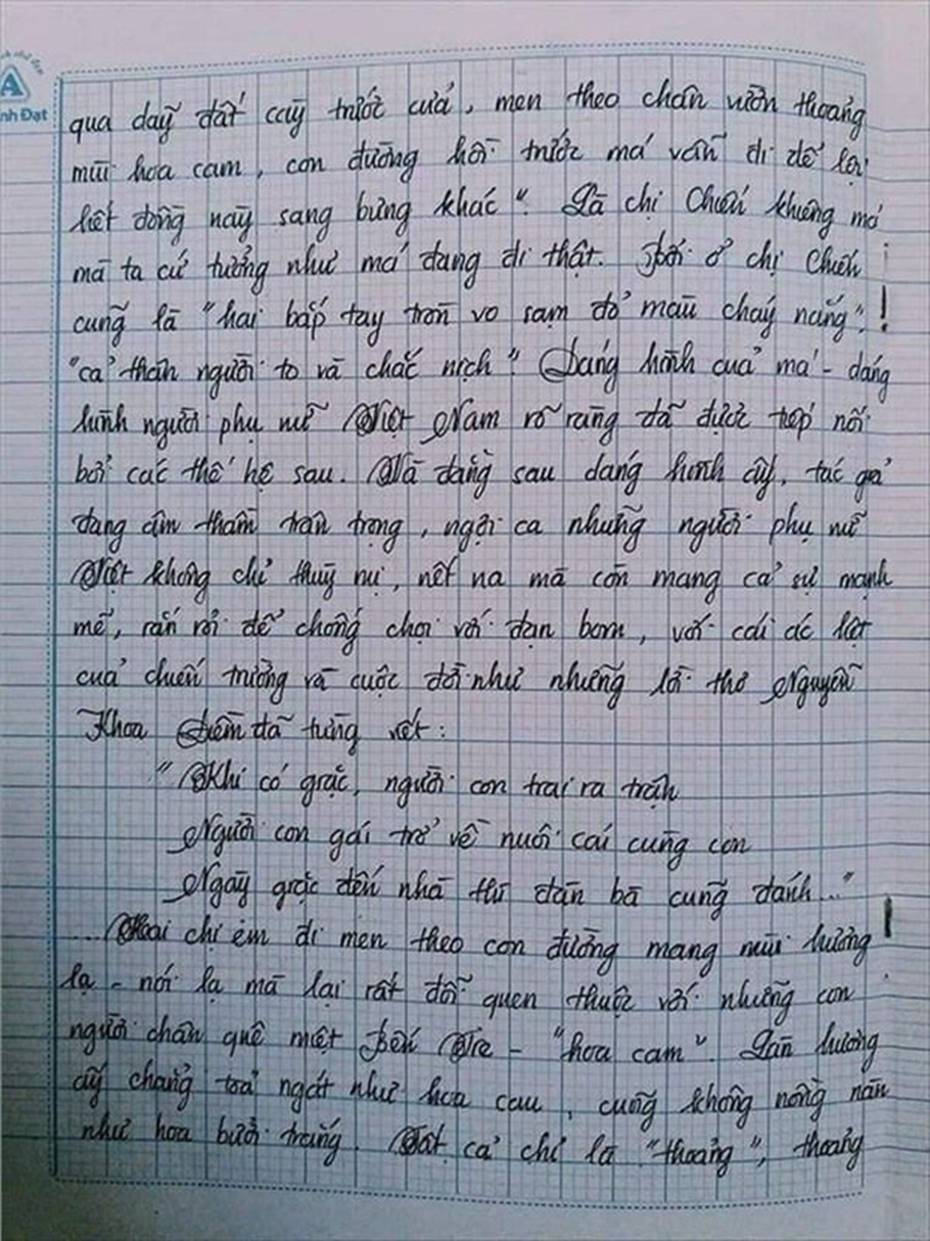 nh Đạt
qua dãy đất cày trước cửa, men theo chân vườn thoảng
mùi hoa cam, con đường hồi trước má vẫn đi để lội
hết đồng này sang bưng khác". Là chị Chiến khiêng má
mà ta cứ tưởng như má đang đi thật. Bởi ở chị Chiến
cũng là "hai bắp tay tròn vo sạm đỏ màu cháy nắng",
"cả thân người to và chắc nịch". Dáng hình của má - dáng
hình người phụ nữ Việt Nam rõ ràng đã được tiếp nối
bởi các thế hệ sau. Và đằng sau dáng hình ấy, tác giả
đang âm thầm trân trọng, ngợi ca những người phụ nữ
Việt không chỉ thuỳ mị, nết na mà còn mang cả sự mạnh
mẽ, rắn rỏi để chống chọi với đạn bom, với cái ác liệt
của chiến trường và cuộc đời như những lời thơ Nguyễn
Khoa Điềm đã từng viết:
"Khi có giặc, người con trai ra trận
Người con gái trở về nuôi cái cùng con
Ngày giặc đến nhà thì đàn bà cũng đánh..."
...Hai chị em đi men theo con đường mang mùi hương
lạ - nói lạ mà lại rất đỗi quen thuộc với những con
người chân quê miệt Bến Tre - "hoa cam". Làn hương
ấy chẳng toả ngát như hoa cau, cũng không nồng nàn
như hoa bưởi trắng. Tất cả chỉ là "thoảng", thoảng